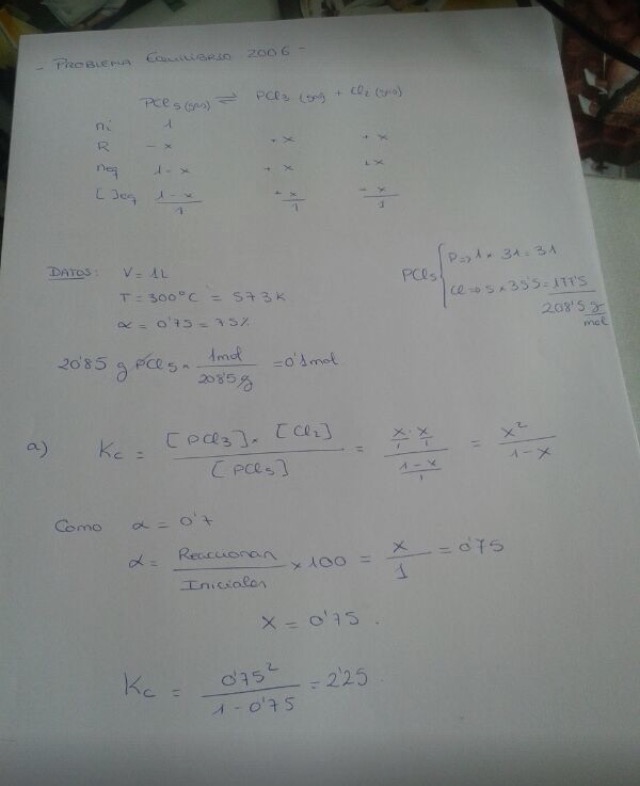 - PROBLEMA EQUILIBRIO 2006 -
PCl5 (gas) ⇌ PCl3 (gas) + Cl2 (gas)
ni 1
R - x + x + x
neq 1 - x + x + x
[ ]eq (1 - x)/1 + x/1 + x/1
DATOS: V = 1L
T = 300°C = 573 K
α = 0'75 = 75%
PCl5 { P => 1 × 31 = 31
Cl => 5 × 35'5 = 177'5
208'5 g/mol
20'85 g PCl5 × 1mol/208'5g = 0'1mol
a) Kc = [PCl3] × [Cl2] / [PCl5] = (x/1 · x/1) / ((1 - x)/1) = x²/(1 - x)
Como α = 0'7
α = Reaccionan/Iniciales × 100 = x/1 = 0'75
x = 0'75.
Kc = 0'75²/(1 - 0'75) = 2'25